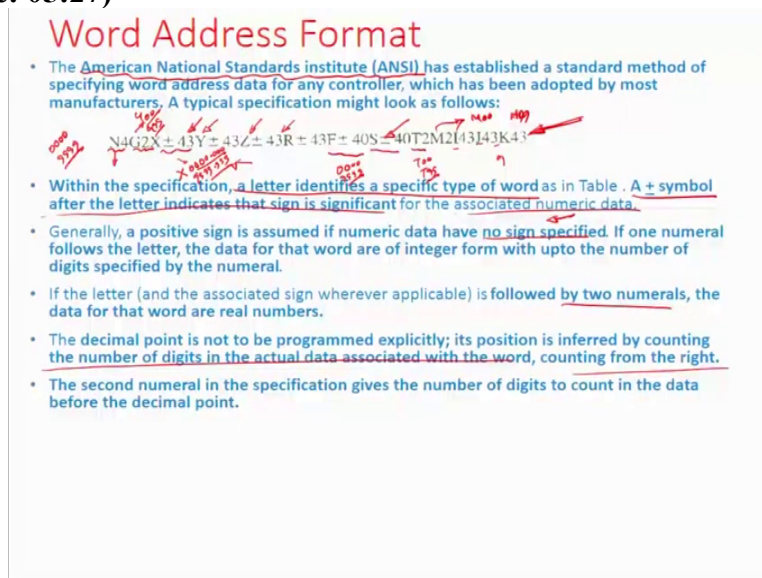 Word Address Format
• The American National Standards institute (ANSI) has established a standard method of
specifying word address data for any controller, which has been adopted by most
manufacturers. A typical specification might look as follows:
N4G2X ± 43Y ± 43Z ± 43R ± 43F ± 40S ± 40T2M2I43J43K43
0000
9999
0000
T00
T99
M00
M99
• Within the specification, a letter identifies a specific type of word as in Table . A ± symbol
after the letter indicates that sign is significant for the associated numeric data.
• Generally, a positive sign is assumed if numeric data have no sign specified. If one numeral
follows the letter, the data for that word are of integer form with upto the number of
digits specified by the numeral.
• If the letter (and the associated sign wherever applicable) is followed by two numerals, the
data for that word are real numbers.
• The decimal point is not to be programmed explicitly; its position is inferred by counting
the number of digits in the actual data associated with the word, counting from the right.
• The second numeral in the specification gives the number of digits to count in the data
before the decimal point.